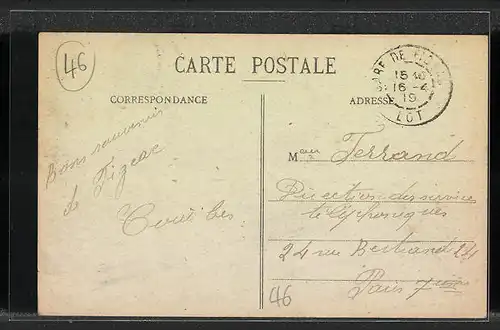 46
CARTE POSTALE
CORRESPONDANCE
ADRESSE
GARE DE FIGEAC
15
16-4
19
LOT
Bons souvenirs
de Figeac
M Ferrand
Direction des services
téléphoniques
24 rue Bertrand 24
Paris 7
46